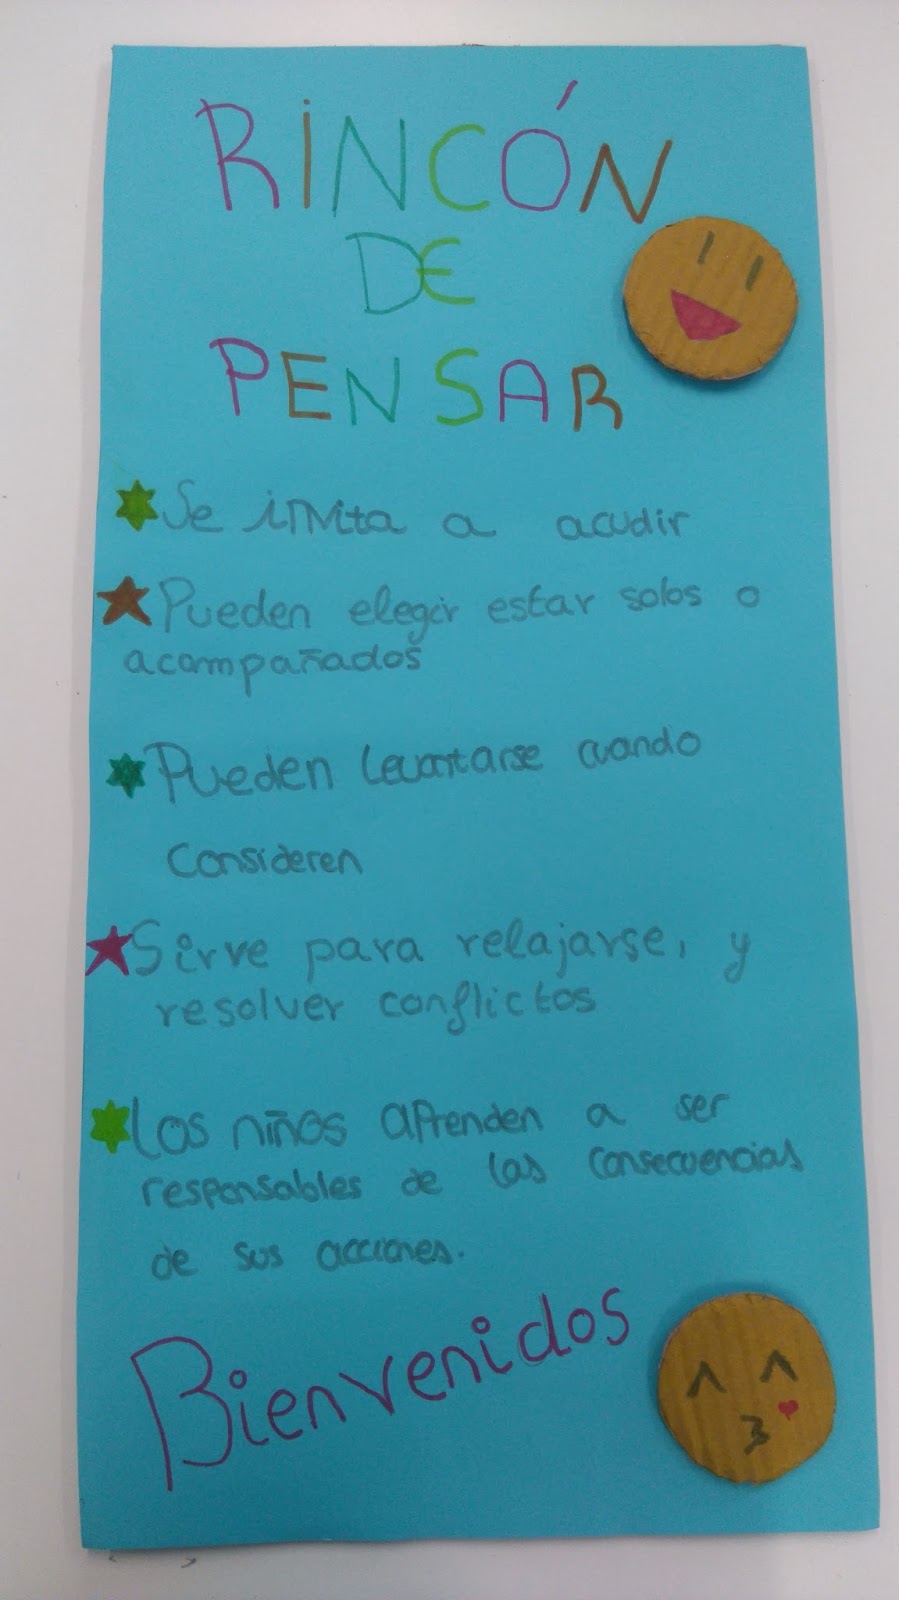 RINCÓN
DE
PENSAR
Se invita a acudir
Pueden elegir estar solos o
acompañados
Pueden levantarse cuando
Consideren
Sirve para relajarse, y
resolver conflictos
Los niños aprenden a ser
responsables de las consecuencias
de sus acciones.
Bienvenidos